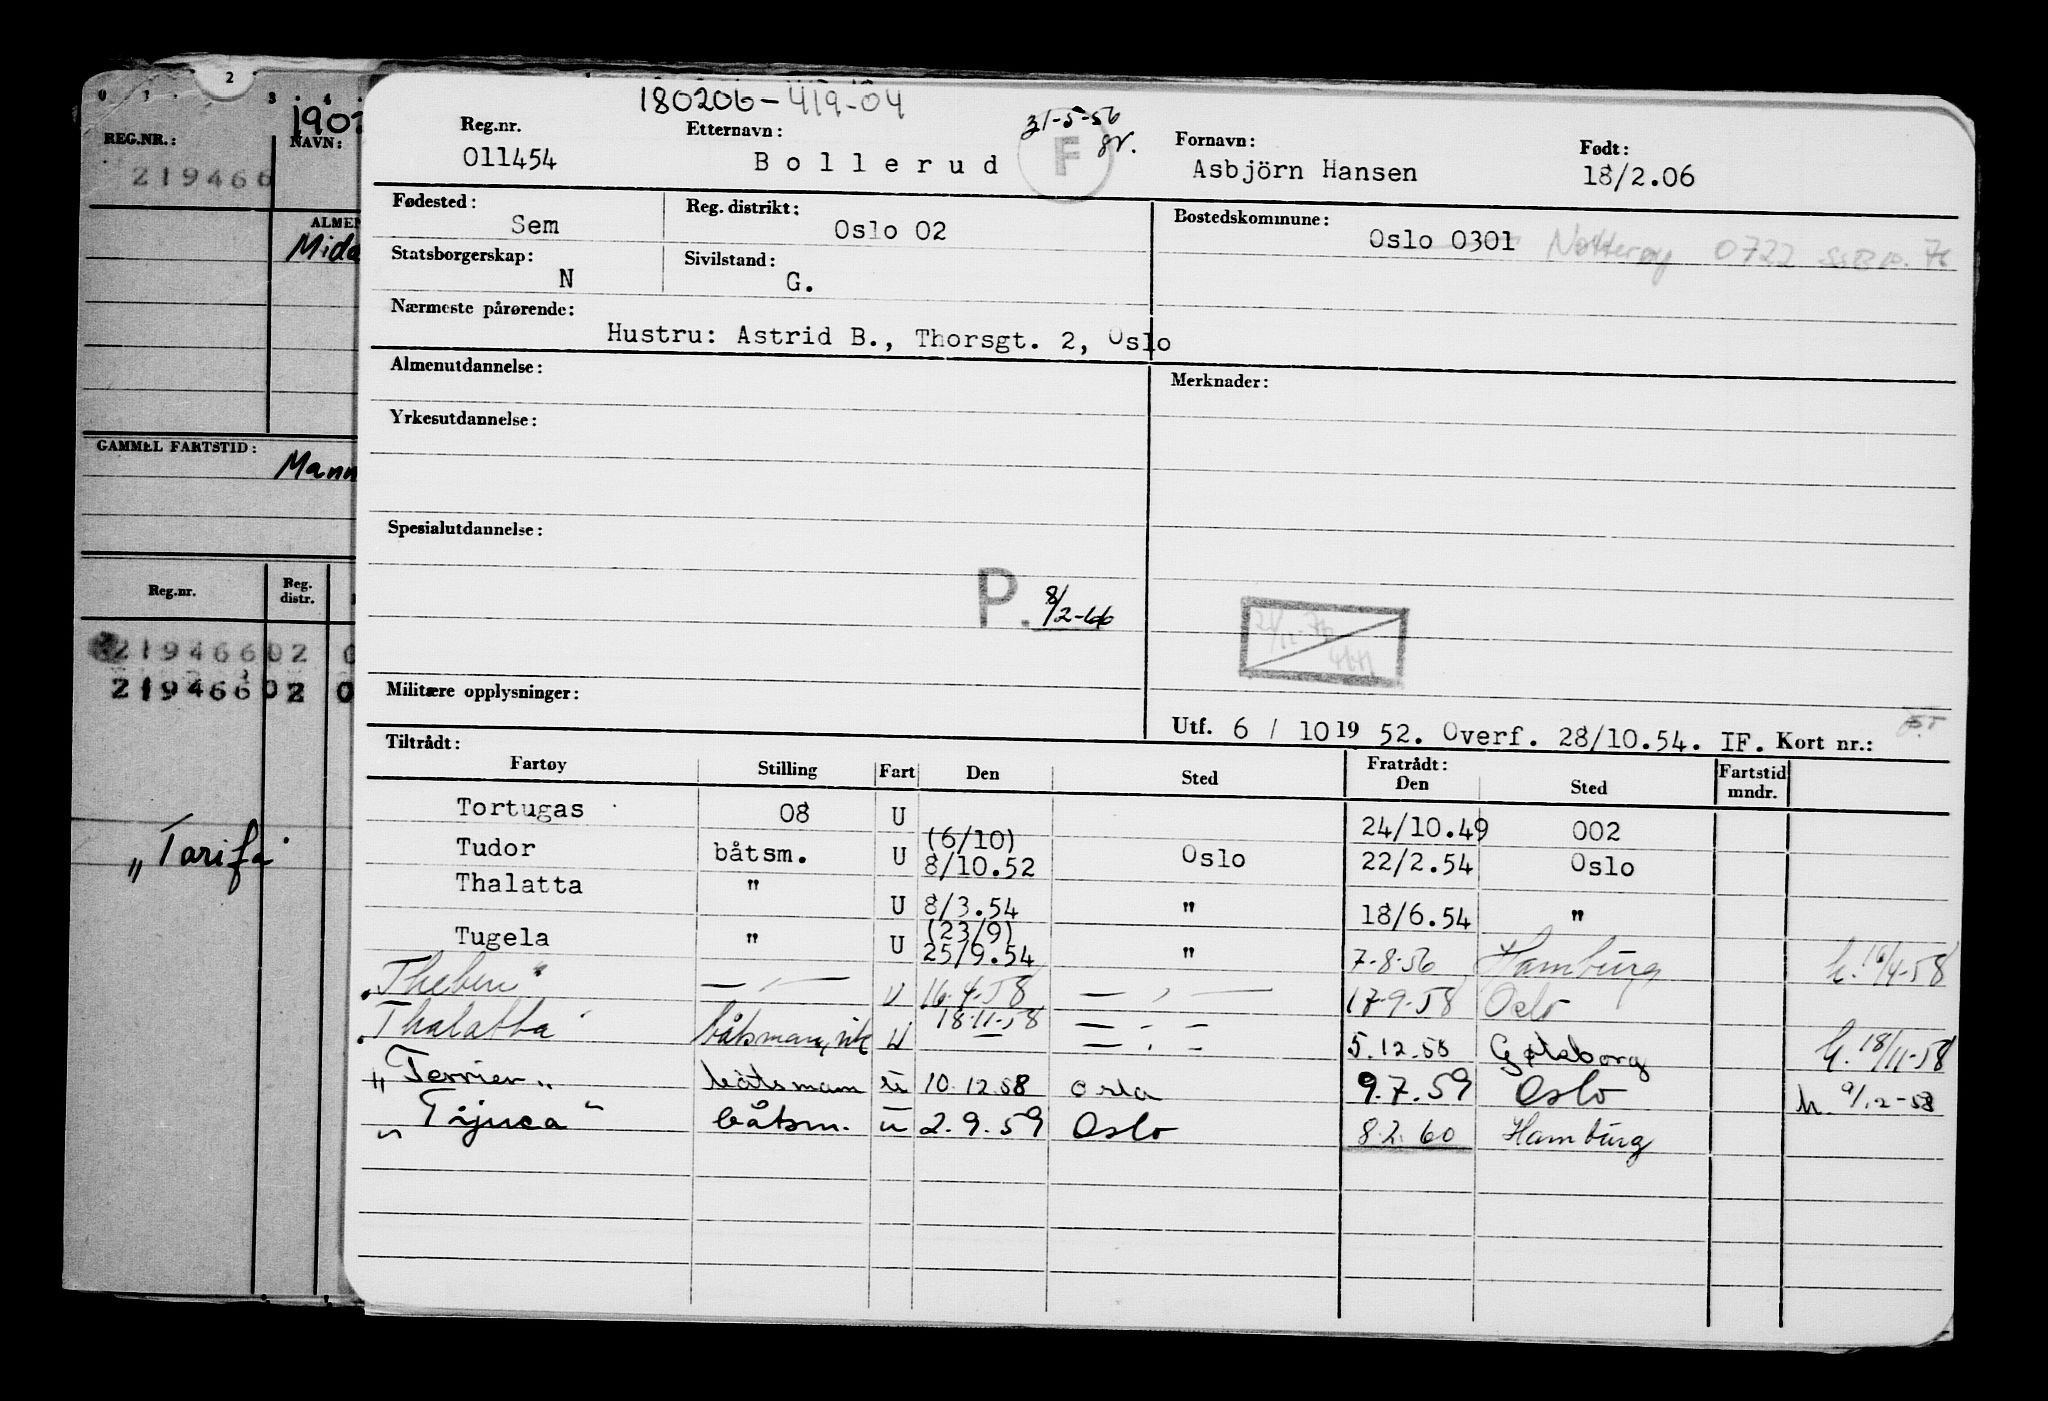 0 1 2 3 4
1902
REG.NR.: NAVN:
219466
ALMEN
Mida
GAMMEL FARTSTID:
Mann
Reg.nr. Reg. distr.
219466 02 0
219466 02 0
"Tarifa"
180206-419-04
Reg.nr. Etternavn: 31-5-56 gr. Fornavn: Født:
011454 Bollerud F Asbjörn Hansen 18/2.06
Fødested: Reg. distrikt: Bostedskommune:
Sem Oslo 02 Oslo 0301 Nøtterøy 0722
Statsborgerskap: Sivilstand:
N G.
Nærmeste pårørende:
Hustru: Astrid B., Thorsgt. 2, Oslo
Almenutdannelse: Merknader:
Yrkesutdannelse:
Spesialutdannelse:
P. 8/2-66
Militære opplysninger:
Utf. 6 / 10 19 52. Overf. 28/10.54. IF. Kort nr.:
Tiltrådt: Fratrådt:
Fartøy Stilling Fart Den Sted Den Sted Fartstid mndr.
Tortugas 08 U 24/10.49 002
Tudor båtsm. U (6/10) 8/10.52 Oslo 22/2.54 Oslo
Thalatta " U 8/3.54 " 18/6.54 "
Tugela " U (23/9) 25/9.54 " 7-8-56 Hamburg h. 16/4-58
"Theben" — " — U 16.4.58 — " — 17-9-58 Oslo
"Thalatta" båtsmann, U 18.11.58 — " — 5.12.58 Gøteborg h. 18/11-58
"Terrier" båtsmann U 10.12.58 Oslo 9.7.59 Oslo h. 9/12-58
"Tijuca" båtsm. U 2.9.59 Oslo 8.2.60 Hamburg